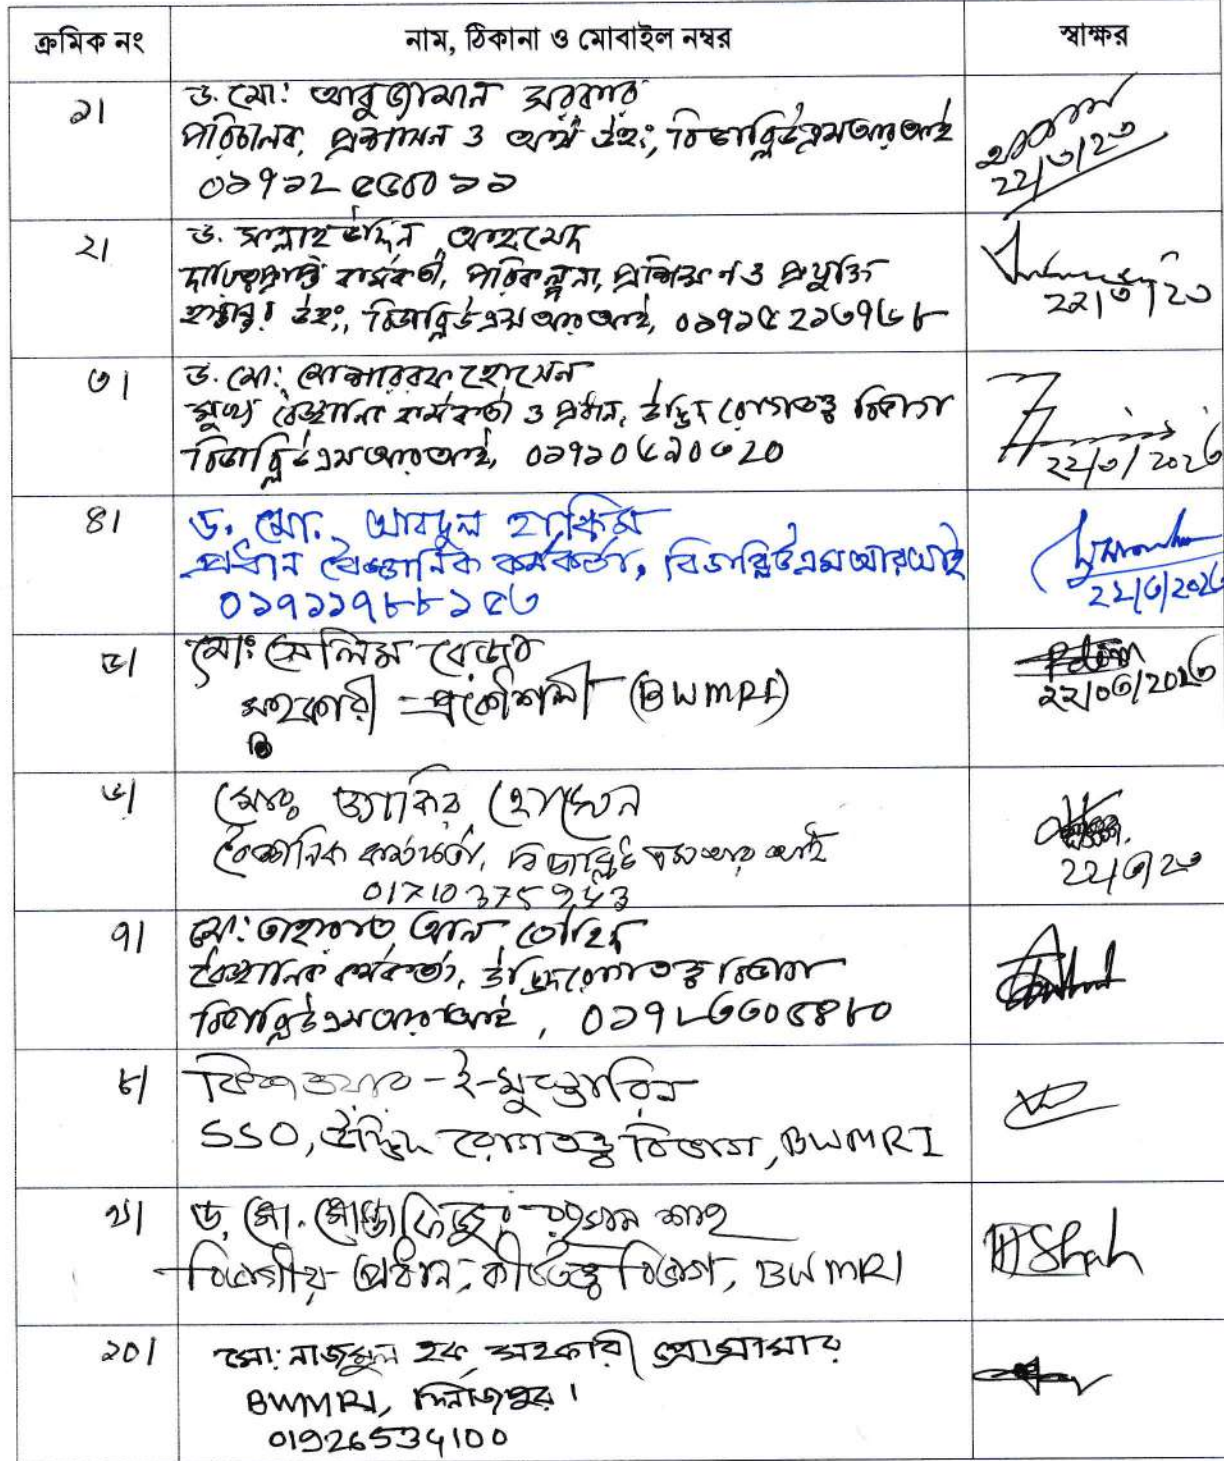 ক্রমিক নং নাম, ঠিকানা ও মোবাইল নম্বর স্বাক্ষর
১। ড. মো: আবু জামান সরকার
পরিচালক, প্রশাসন ও অর্থ উইং, বিডাব্লিউএমআরআই
২২/৩/২৩
২। ড. সালাহ্উদ্দিন আহমেদ
দায়িত্বপ্রাপ্ত কর্মকর্তা, পরিকল্পনা, প্রশিক্ষণ ও প্রযুক্তি
হস্তান্তর উইং, বিডাব্লিউএমআরআই,
২২/৩/২৩
৩। ড. মো: মোশাররফ হোসেন
মুখ্য বৈজ্ঞানিক কর্মকর্তা ও প্রধান, উদ্ভিদ রোগতত্ত্ব বিভাগ
বিডাব্লিউএমআরআই,
২২/৩/২০২৩
৪। ড. মো. আবদুল হাকিম
প্রধান বৈজ্ঞানিক কর্মকর্তা, বিডাব্লিউএমআরআই
০১৭১১৭৮৮১৫৩
২২/৩/২০২৩
৫। মো: সেলিম রেজা
সহকারী প্রকৌশলী (BWMRI)
২২/০৩/২০২৩
৬। মোঃ জাকির হোসেন
বৈজ্ঞানিক কর্মকর্তা, বিডাব্লিউএমআরআই
২২/৩/২৩
৭। মো: আল তৌহিদ
বৈজ্ঞানিক কর্মকর্তা, উদ্ভিদ রোগতত্ত্ব বিভাগ
বিডাব্লিউএমআরআই,
৮। কিশওয়ার-ই-মুস্তারিন
SSO, উদ্ভিদ রোগতত্ত্ব বিভাগ, BWMRI
৯। ড. মো. মোস্তাফিজুর রহমান শাহ
বিভাগীয় প্রধান, কীটতত্ত্ব বিভাগ, BWMRI
Shah
১০। মো: নাজমুল হক, সহকারী প্রোগ্রামার
BWMRI, দিনাজপুর।
01926534100